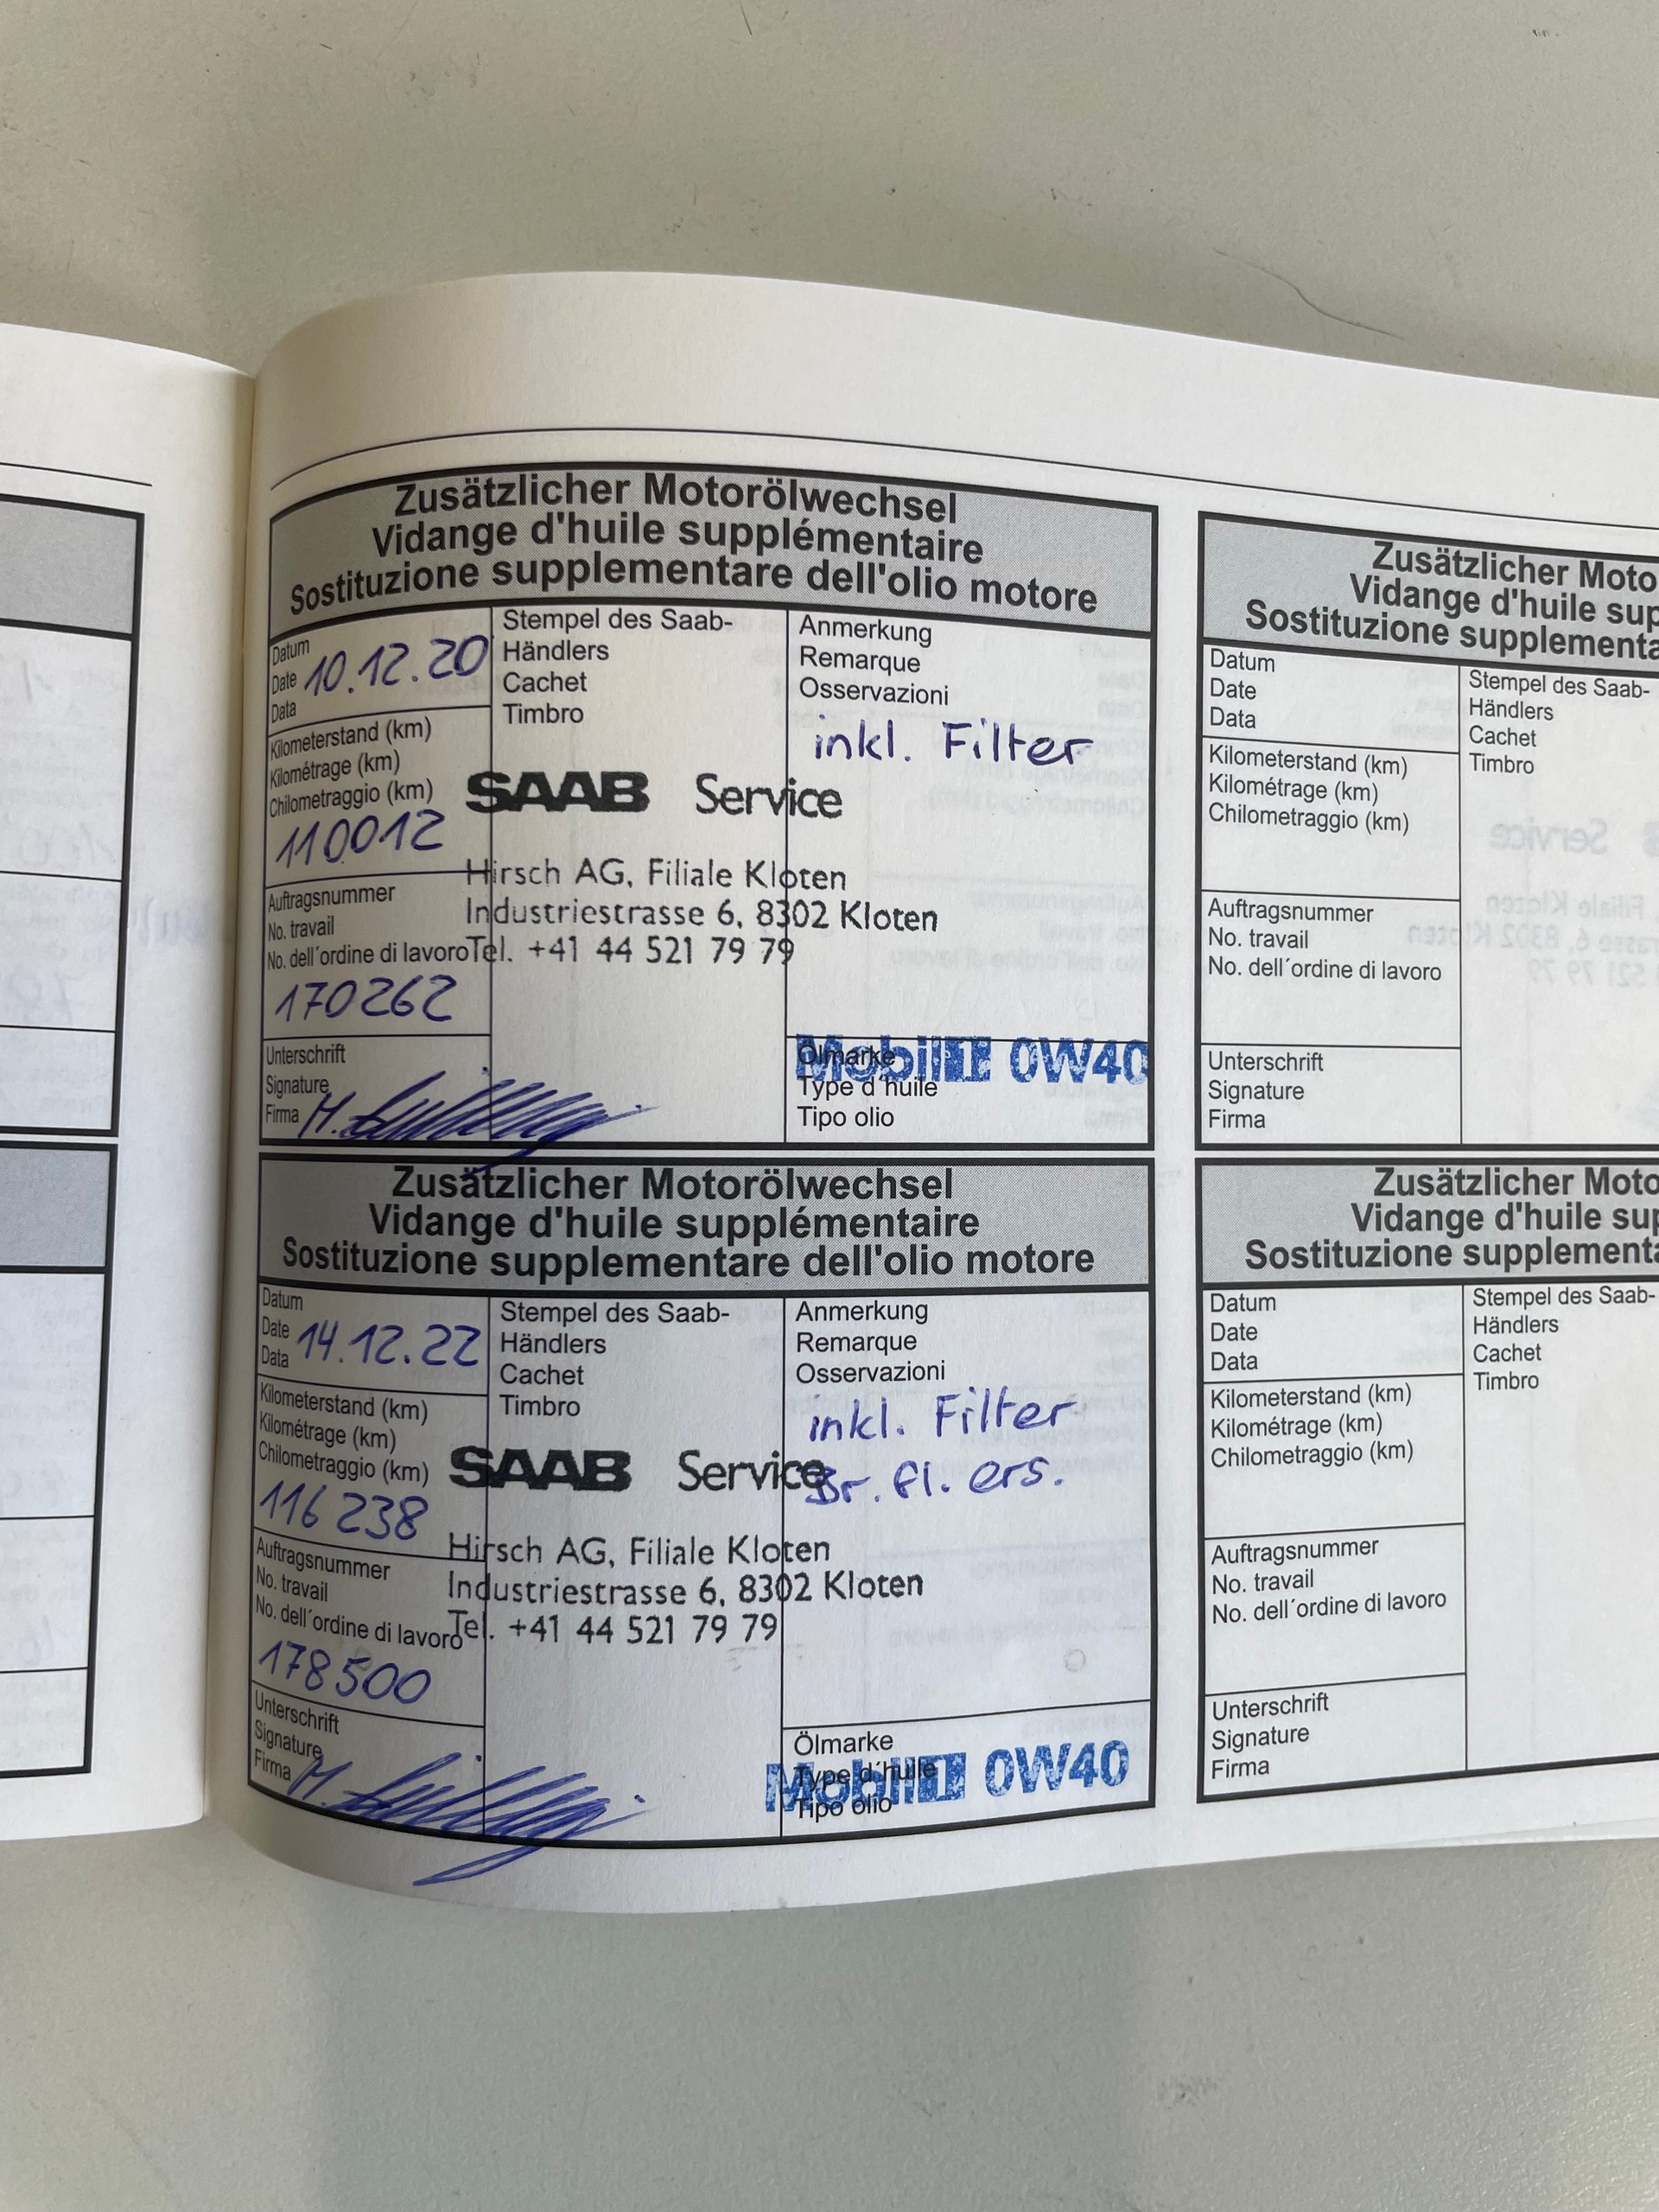 Zusätzlicher Motorölwechsel
Vidange d'huile supplémentaire
Sostituzione supplementare dell'olio motore
Datum
Date
Data
10.12.20
Stempel des Saab-
Händlers
Cachet
Timbro
Anmerkung
Remarque
Osservazioni
inkl. Filter
Kilometerstand (km)
Kilométrage (km)
Chilometraggio (km)
110012
SAAB Service
Hirsch AG, Filiale Kloten
Industriestrasse 6, 8302 Kloten
Tel. +41 44 521 79 79
Auftragsnummer
No. travail
No. dell´ordine di lavoro
170262
Unterschrift
Signature
Firma
Ölmarke
Type d´huile
Tipo olio
Mobil 1 0W40
Zusätzlicher Motorölwechsel
Vidange d'huile supplémentaire
Sostituzione supplementare dell'olio motore
Datum
Date
Data
14.12.22
Stempel des Saab-
Händlers
Cachet
Timbro
Anmerkung
Remarque
Osservazioni
inkl. Filter
Br. fl. ers.
Kilometerstand (km)
Kilométrage (km)
Chilometraggio (km)
116238
SAAB Service
Hirsch AG, Filiale Kloten
Industriestrasse 6, 8302 Kloten
Tel. +41 44 521 79 79
Auftragsnummer
No. travail
No. dell´ordine di lavoro
178500
Unterschrift
Signature
Firma
Ölmarke
Type d´huile
Tipo olio
Mobil 1 0W40
Zusätzlicher Moto
Vidange d'huile sup
Sostituzione supplementa
Datum
Date
Data
Stempel des Saab-
Händlers
Cachet
Timbro
Kilometerstand (km)
Kilométrage (km)
Chilometraggio (km)
Auftragsnummer
No. travail
No. dell´ordine di lavoro
Unterschrift
Signature
Firma
Zusätzlicher Moto
Vidange d'huile sup
Sostituzione supplementa
Datum
Date
Data
Stempel des Saab-
Händlers
Cachet
Timbro
Kilometerstand (km)
Kilométrage (km)
Chilometraggio (km)
Auftragsnummer
No. travail
No. dell´ordine di lavoro
Unterschrift
Signature
Firma